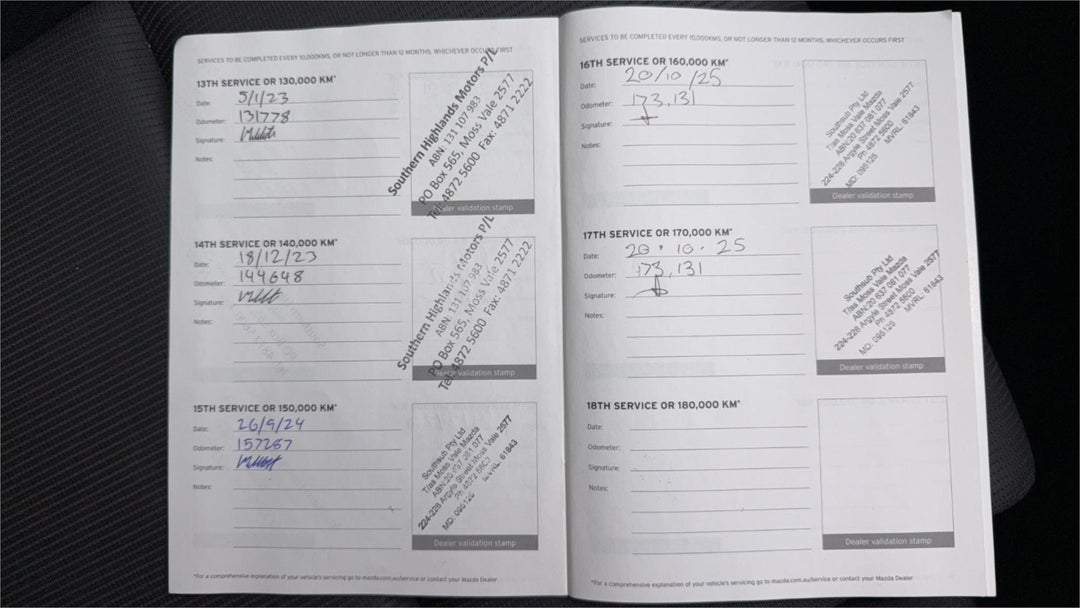 SERVICES TO BE COMPLETED EVERY 10,000KMS, OR NOT LONGER THAN 12 MONTHS, WHICHEVER OCCURS FIRST
13TH SERVICE OR 130,000 KM*
Date: 5/1/23
Odometer: 131778
Signature:
Notes:
Southern Highlands Motors P/L
ABN: 131 107 983
PO Box 565, Moss Vale 2577
Tel: 4872 5600 Fax: 4871 2222
Dealer validation stamp
14TH SERVICE OR 140,000 KM*
Date: 18/12/23
Odometer: 144648
Signature:
Notes:
Southern Highlands Motors P/L
ABN: 131 107 983
PO Box 565, Moss Vale 2577
Tel: 4872 5600 Fax: 4871 2222
Dealer validation stamp
15TH SERVICE OR 150,000 KM*
Date: 26/9/24
Odometer: 157287
Signature:
Notes:
Southsub Pty Ltd
T/as Moss Vale Mazda
ABN:20 637 081 077
224-228 Argyle Street Moss Vale 2577
Ph 4872 5600
MD: 095125 MVRL: 61843
Dealer validation stamp
*For a comprehensive explanation of your vehicle's servicing go to mazda.com.au/service or contact your Mazda Dealer
SERVICES TO BE COMPLETED EVERY 10,000KMS, OR NOT LONGER THAN 12 MONTHS, WHICHEVER OCCURS FIRST
16TH SERVICE OR 160,000 KM*
Date: 20/10/25
Odometer: 173,131
Signature:
Notes:
Southsub Pty Ltd
T/as Moss Vale Mazda
ABN:20 637 081 077
224-228 Argyle Street Moss Vale 2577
Ph 4872 5600
MD: 095125 MVRL: 61843
Dealer validation stamp
17TH SERVICE OR 170,000 KM*
Date: 20.10.25
Odometer: 173,131
Signature:
Notes:
Southsub Pty Ltd
T/as Moss Vale Mazda
ABN:20 637 081 077
224-228 Argyle Street Moss Vale 2577
Ph 4872 5600
MD: 095125 MVRL: 61843
Dealer validation stamp
18TH SERVICE OR 180,000 KM*
Date:
Odometer:
Signature:
Notes:
Dealer validation stamp
*For a comprehensive explanation of your vehicle's servicing go to mazda.com.au/service or contact your Mazda Dealer